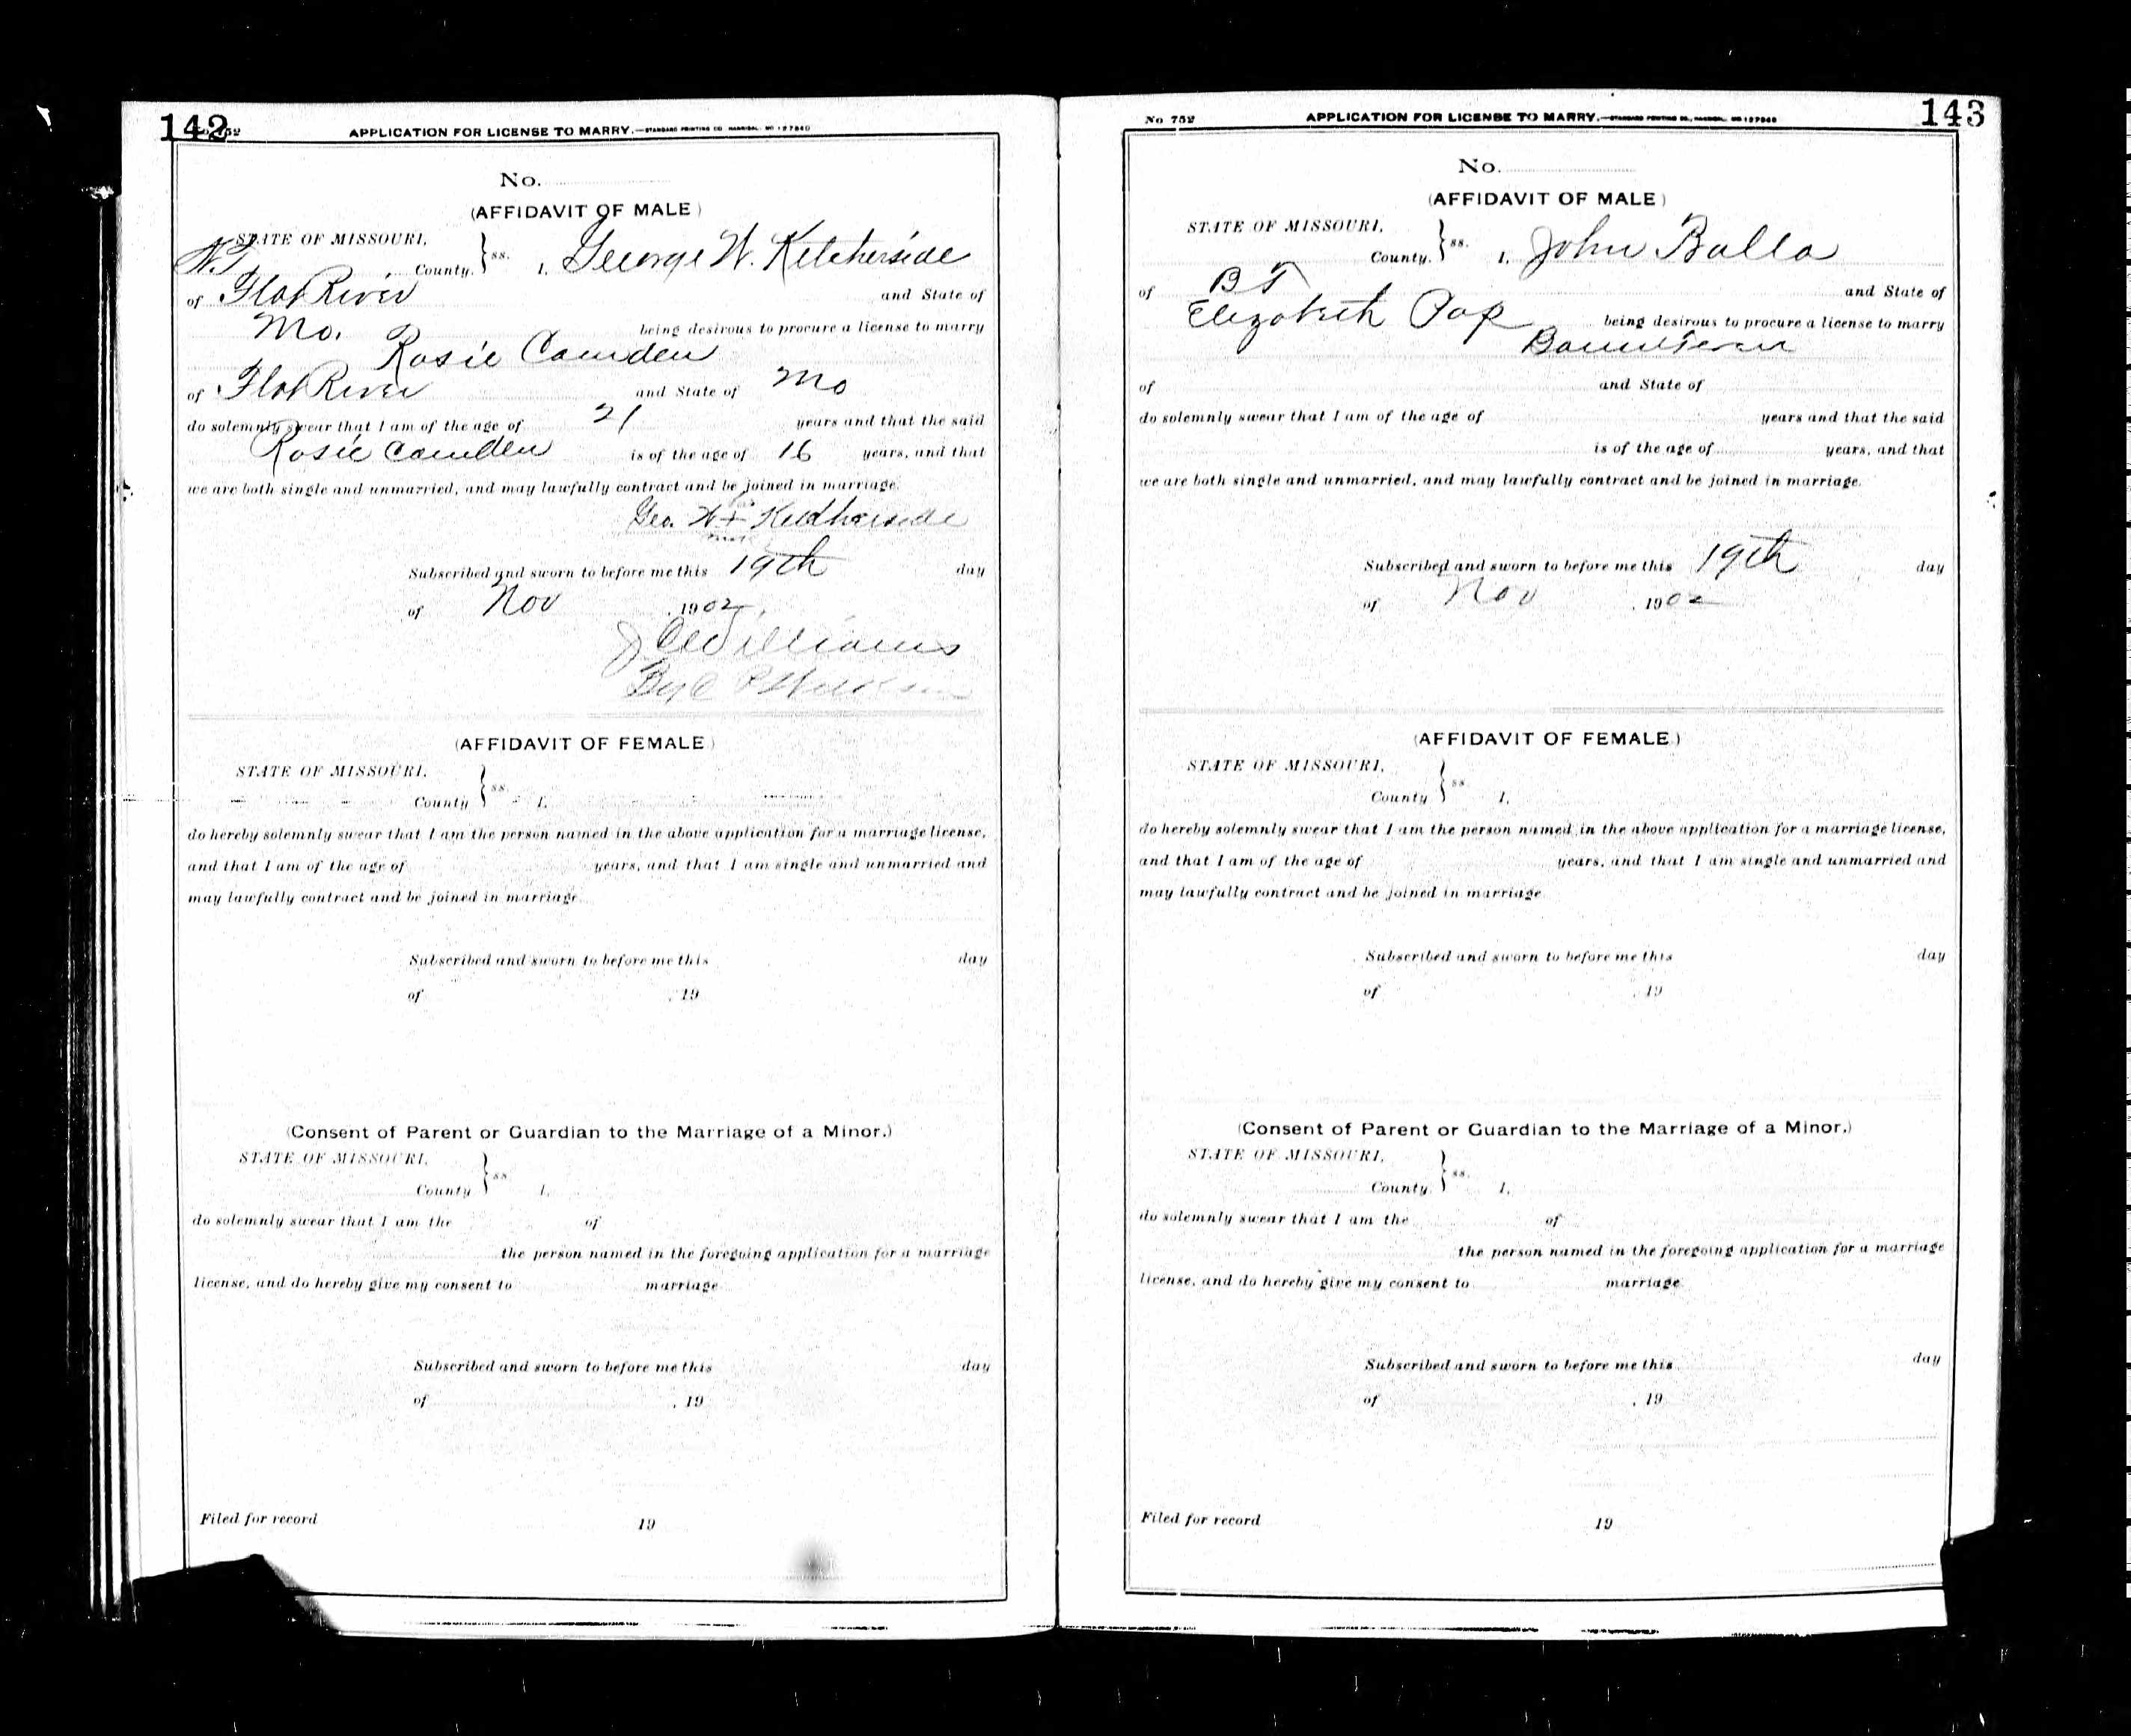 142
No 752
APPLICATION FOR LICENSE TO MARRY.—STANDARD PRINTING CO. HANNIBAL. MO 127840
No.
(AFFIDAVIT OF MALE)
STATE OF MISSOURI,
County. } ss. I, George W. Kitcherside
of Flat River and State of
Mo. being desirous to procure a license to marry
Rosie Camden
of Flat River and State of Mo
do solemnly swear that I am of the age of 21 years and that the said
Rosie Camden is of the age of 16 years, and that
we are both single and unmarried, and may lawfully contract and be joined in marriage.
Geo. W + 
mark
Subscribed and sworn to before me this 19th day
of Nov , 1902.
Williams
By
(AFFIDAVIT OF FEMALE)
STATE OF MISSOURI,
County } ss. I,
do hereby solemnly swear that I am the person named in the above application for a marriage license,
and that I am of the age of years, and that I am single and unmarried and
may lawfully contract and be joined in marriage.
Subscribed and sworn to before me this day
of , 19
(Consent of Parent or Guardian to the Marriage of a Minor.)
STATE OF MISSOURI,
County } ss I,
do solemnly swear that I am the of
the person named in the foregoing application for a marriage
license, and do hereby give my consent to marriage
Subscribed and sworn to before me this day
of , 19
Filed for record 19
143
No 752
APPLICATION FOR LICENSE TO MARRY.—STANDARD PRINTING CO., HANNIBAL, MO 127840
No.
(AFFIDAVIT OF MALE)
STATE OF MISSOURI,
County. } ss. I, John Balla
of B T and State of
Elizabeth Pap being desirous to procure a license to marry
of and State of
do solemnly swear that I am of the age of years and that the said
is of the age of years, and that
we are both single and unmarried, and may lawfully contract and be joined in marriage.
Subscribed and sworn to before me this 19th day
of Nov , 1902
(AFFIDAVIT OF FEMALE)
STATE OF MISSOURI,
County } ss I,
do hereby solemnly swear that I am the person named in the above application for a marriage license,
and that I am of the age of years, and that I am single and unmarried and
may lawfully contract and be joined in marriage
Subscribed and sworn to before me this day
of , 19
(Consent of Parent or Guardian to the Marriage of a Minor.)
STATE OF MISSOURI,
County. } ss. I,
do solemnly swear that I am the of
the person named in the foregoing application for a marriage
license, and do hereby give my consent to marriage
Subscribed and sworn to before me this day
of , 19
Filed for record 19